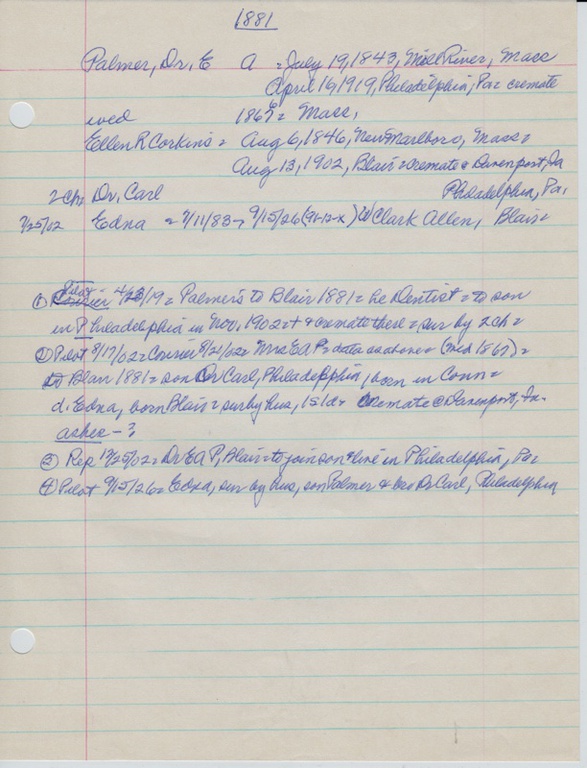 1881
Palmer, Dr. E A = July 19, 1843, Mill River, Mass
April 16, 1919, Philadelphia, Pa = cremate
wed 1867 = Mass,
Ellen R Corkins = Aug 6, 1846, New Marlboro, Mass =
Aug 13, 1902, Blair = cremate @ Davenport, Ia
2 ch = Dr. Carl Philadelphia, Pa,
9/25/02 Edna = 9/11/83 → 9/15/26 (91-12-x) Clark Allen, Blair =
① Pilot 4/23/19 = Palmer's to Blair 1881 = he Dentist = to son
in Philadelphia in Nov, 1902 = + & cremate there = sur by 2 ch =
② Pilot 8/17/02 = Courier 8/21/02 = Mrs E A P = data as above = (wed 1867) =
to Blair 1881 = son Dr Carl, Philadelphia, born in Conn =
d. Edna, born Blair = sur by hus, 1 s 1 d & cremate @ Davenport, Ia.
ashes - ?
③ Rep 12/25/02 = Dr E A P, Blair = to join son & live in Philadelphia, Pa
④ Pilot 9/15/26 = Edna, sur by hus, son Palmer & bro Dr Carl, Philadelphia